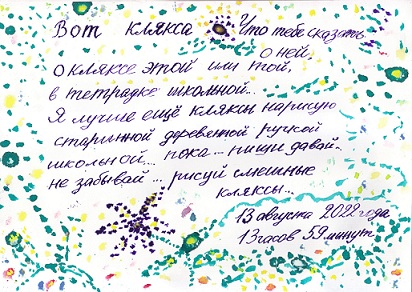 Вот клякса Что тебе сказать
о ней,
о кляксе этой или той,
в тетрадке школьной...
Я лучше ещё кляксы нарисую
старинной деревянной ручкой
школьной... пока... пиши давай.
не забывай... рисуй смешные
кляксы...
13 августа 2022 года
13 часов 59 минут